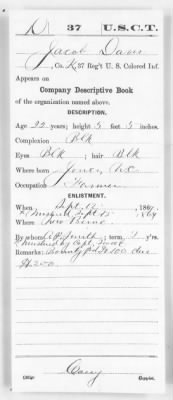 D 37 U.S.C.T.
Jacob Davis
, Co. K, 37 Reg't U. S. Colored Inf.
Appears on
Company Descriptive Book
of the organization named above.
DESCRIPTION.
Age 22 years; height 5 feet 5 inches.
Complexion Blk
Eyes Blk ; hair Blk
Where born Jones, N.C.
Occupation Farmer
ENLISTMENT.
When Sept. 12, 1864.
Sept. 12 1864
Where New Berne
By whom Smith ; term 3 y'rs.
Mustered by Capt.
Remarks: Bounty Pd. $100 due
$200
Copyist.